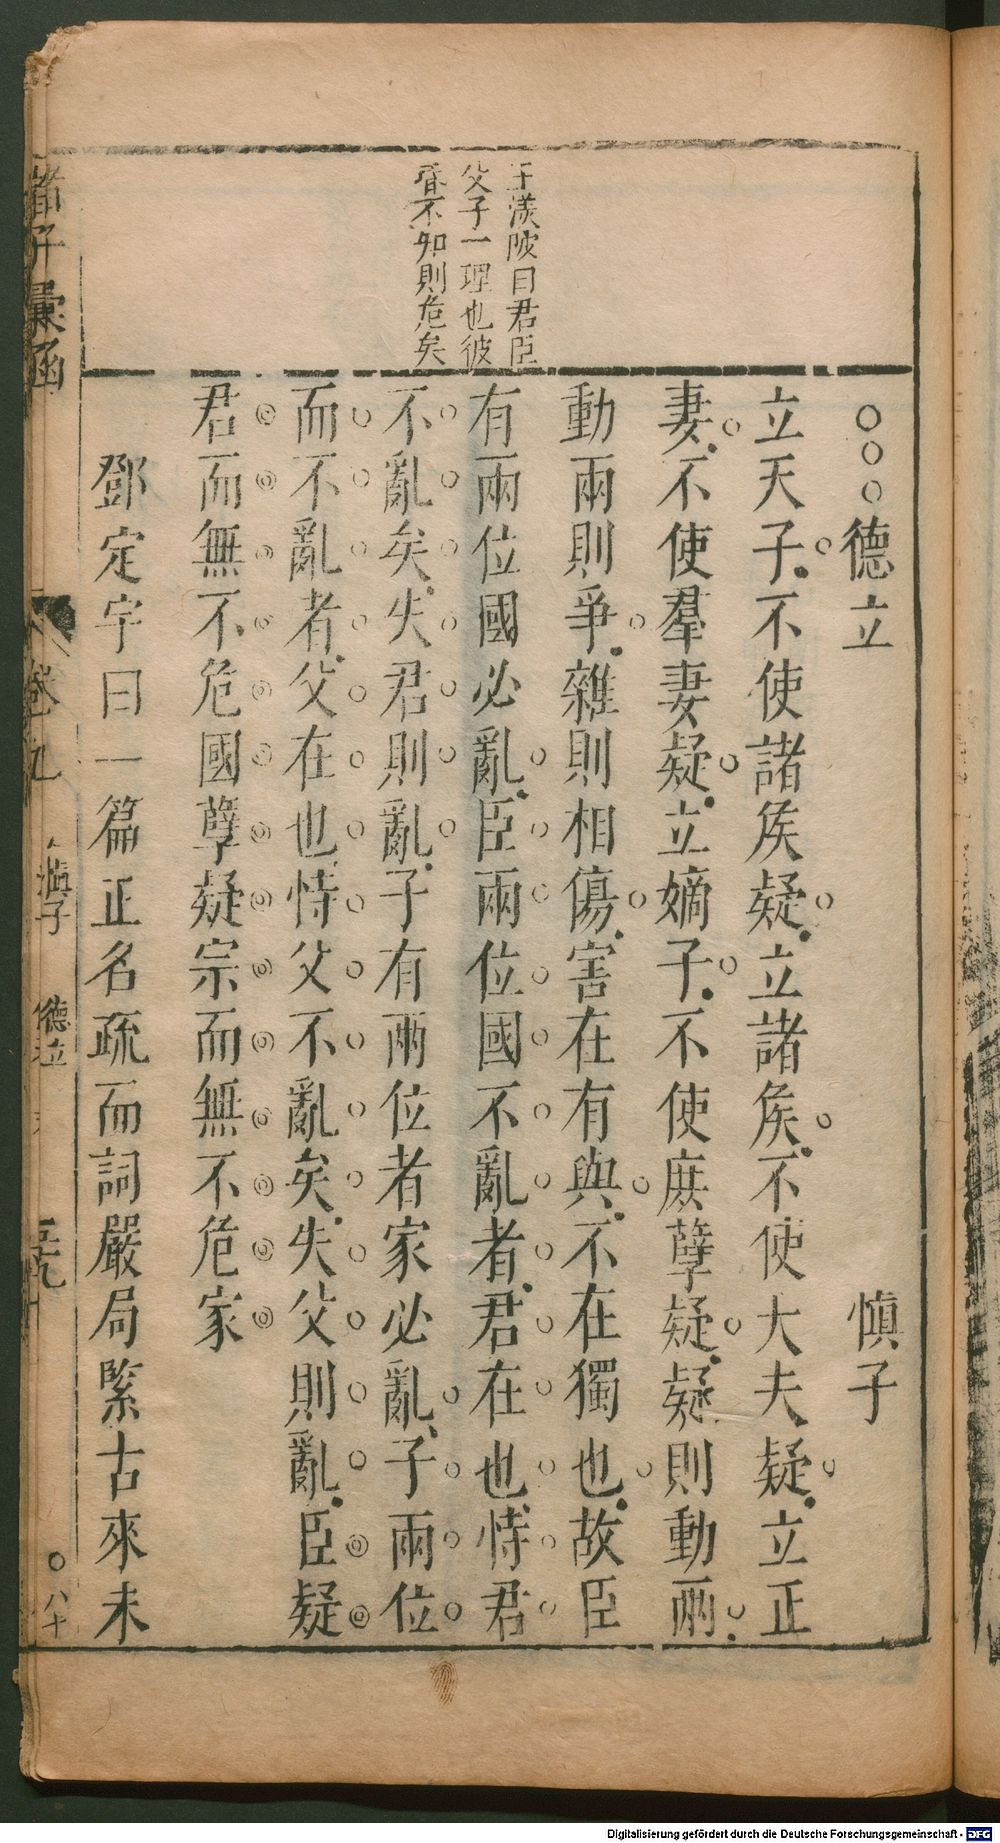 王渼陂曰君臣
父子一理也彼
昏不知則危矣
○○○德立 慎子
立天子不使諸矦疑立諸矦不使大夫疑立正
妻不使羣妻疑立嫡子不使庶孽疑疑則動兩
動兩則爭雜則相傷害在有與不在獨也故臣
有兩位國必亂臣兩位國不亂者君在也恃君
不亂矣失君則亂子有兩位者家必亂子兩位
而不亂者父在也恃父不亂矣失父則亂臣疑
君而無不危國孽疑宗而無不危家
鄧定宇曰一篇正名疏而詞嚴局緊古來未
諸子彙函 卷九 慎子 德立 八十
Digitalisierung gefördert durch die Deutsche Forschungsgemeinschaft - DFG